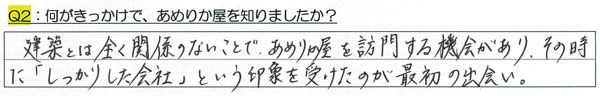 Q2：何がきっかけで、あめりか屋を知りましたか？
建築とは全く関係のないことで、あめりか屋を訪問する機会があり、その時
に「しっかりした会社」という印象を受けたのが最初の出会い。